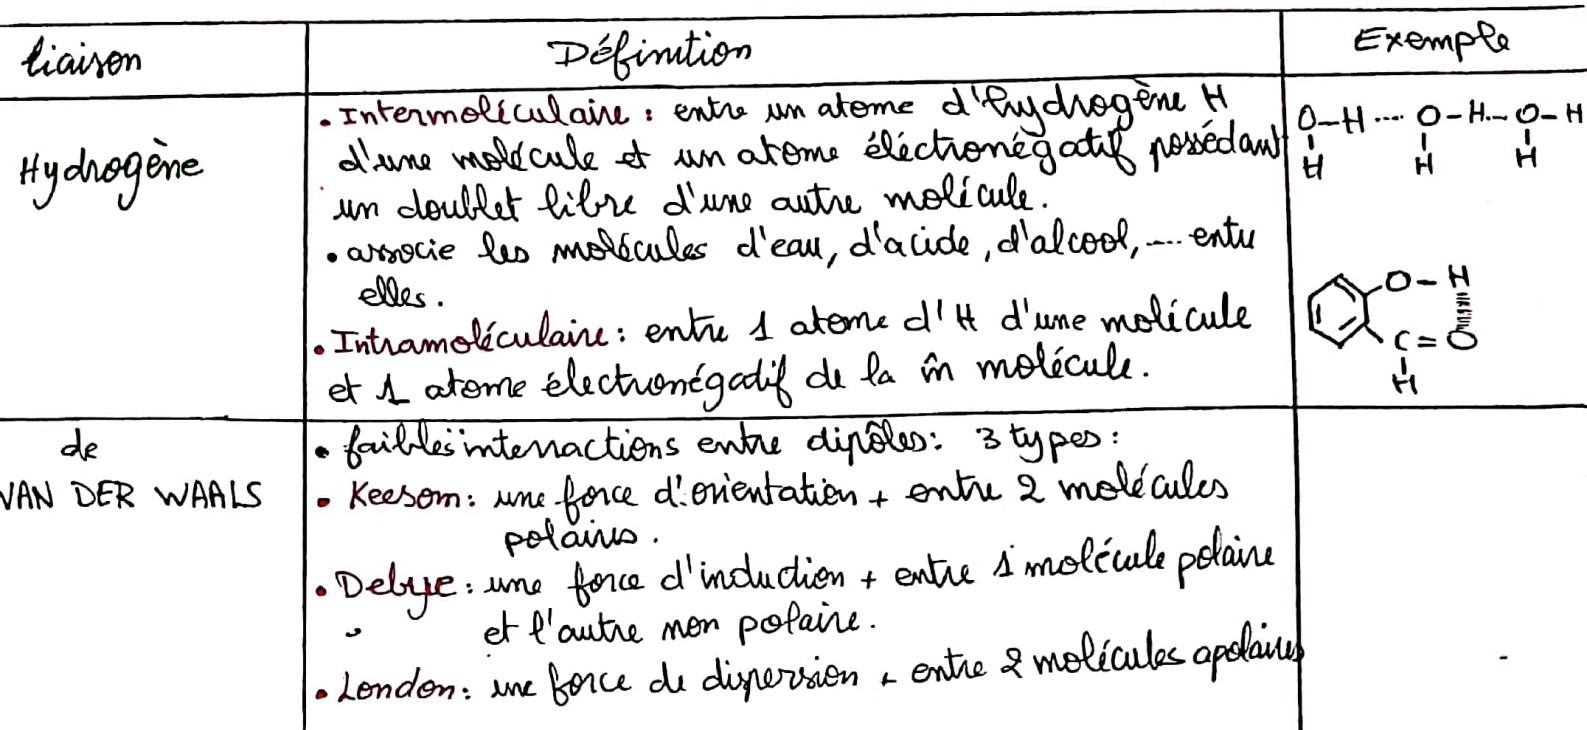 liaison
Définition
Exemple
Hydrogène
• Intermoléculaire : entre un atome d'hydrogène H
d'une molécule et un atome éléctronégatif possédant
un doublet libre d'une autre molécule.
• associe les molécules d'eau, d'acide, d'alcool, .... entre
elles.
• Intramoléculaire : entre 1 atome d'H d'une molécule
et 1 atome électronégatif de la m̂ molécule.
O–H .... O–H... O–H
H H H
O–H
C=O
H
de
VAN DER WAALS
• faibles interractions entre dipôles: 3 types:
• Keesom: une force d'orientation + entre 2 molécules
polaires.
• Debye: une force d'induction + entre 1 molécule polaire
et l'autre non polaire.
• London: une force de dispersion + entre 2 molécules apolaires